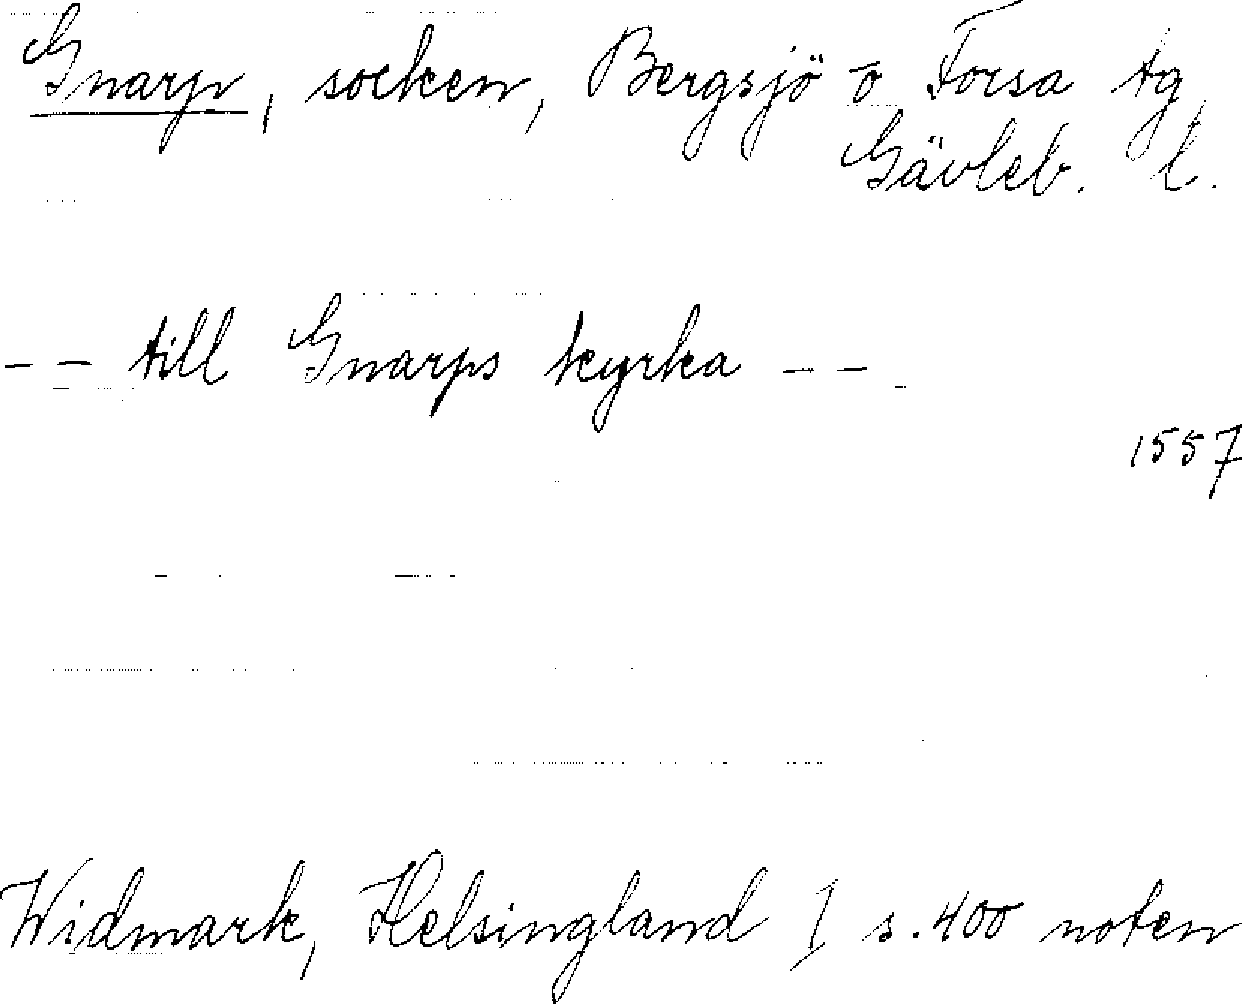 Gnarp, socken, Bergsjö o Forsa tg
Gävleb. l.
-- till Gnarps kyrka --
1557
Widmark, Helsingland I s. 400 noten